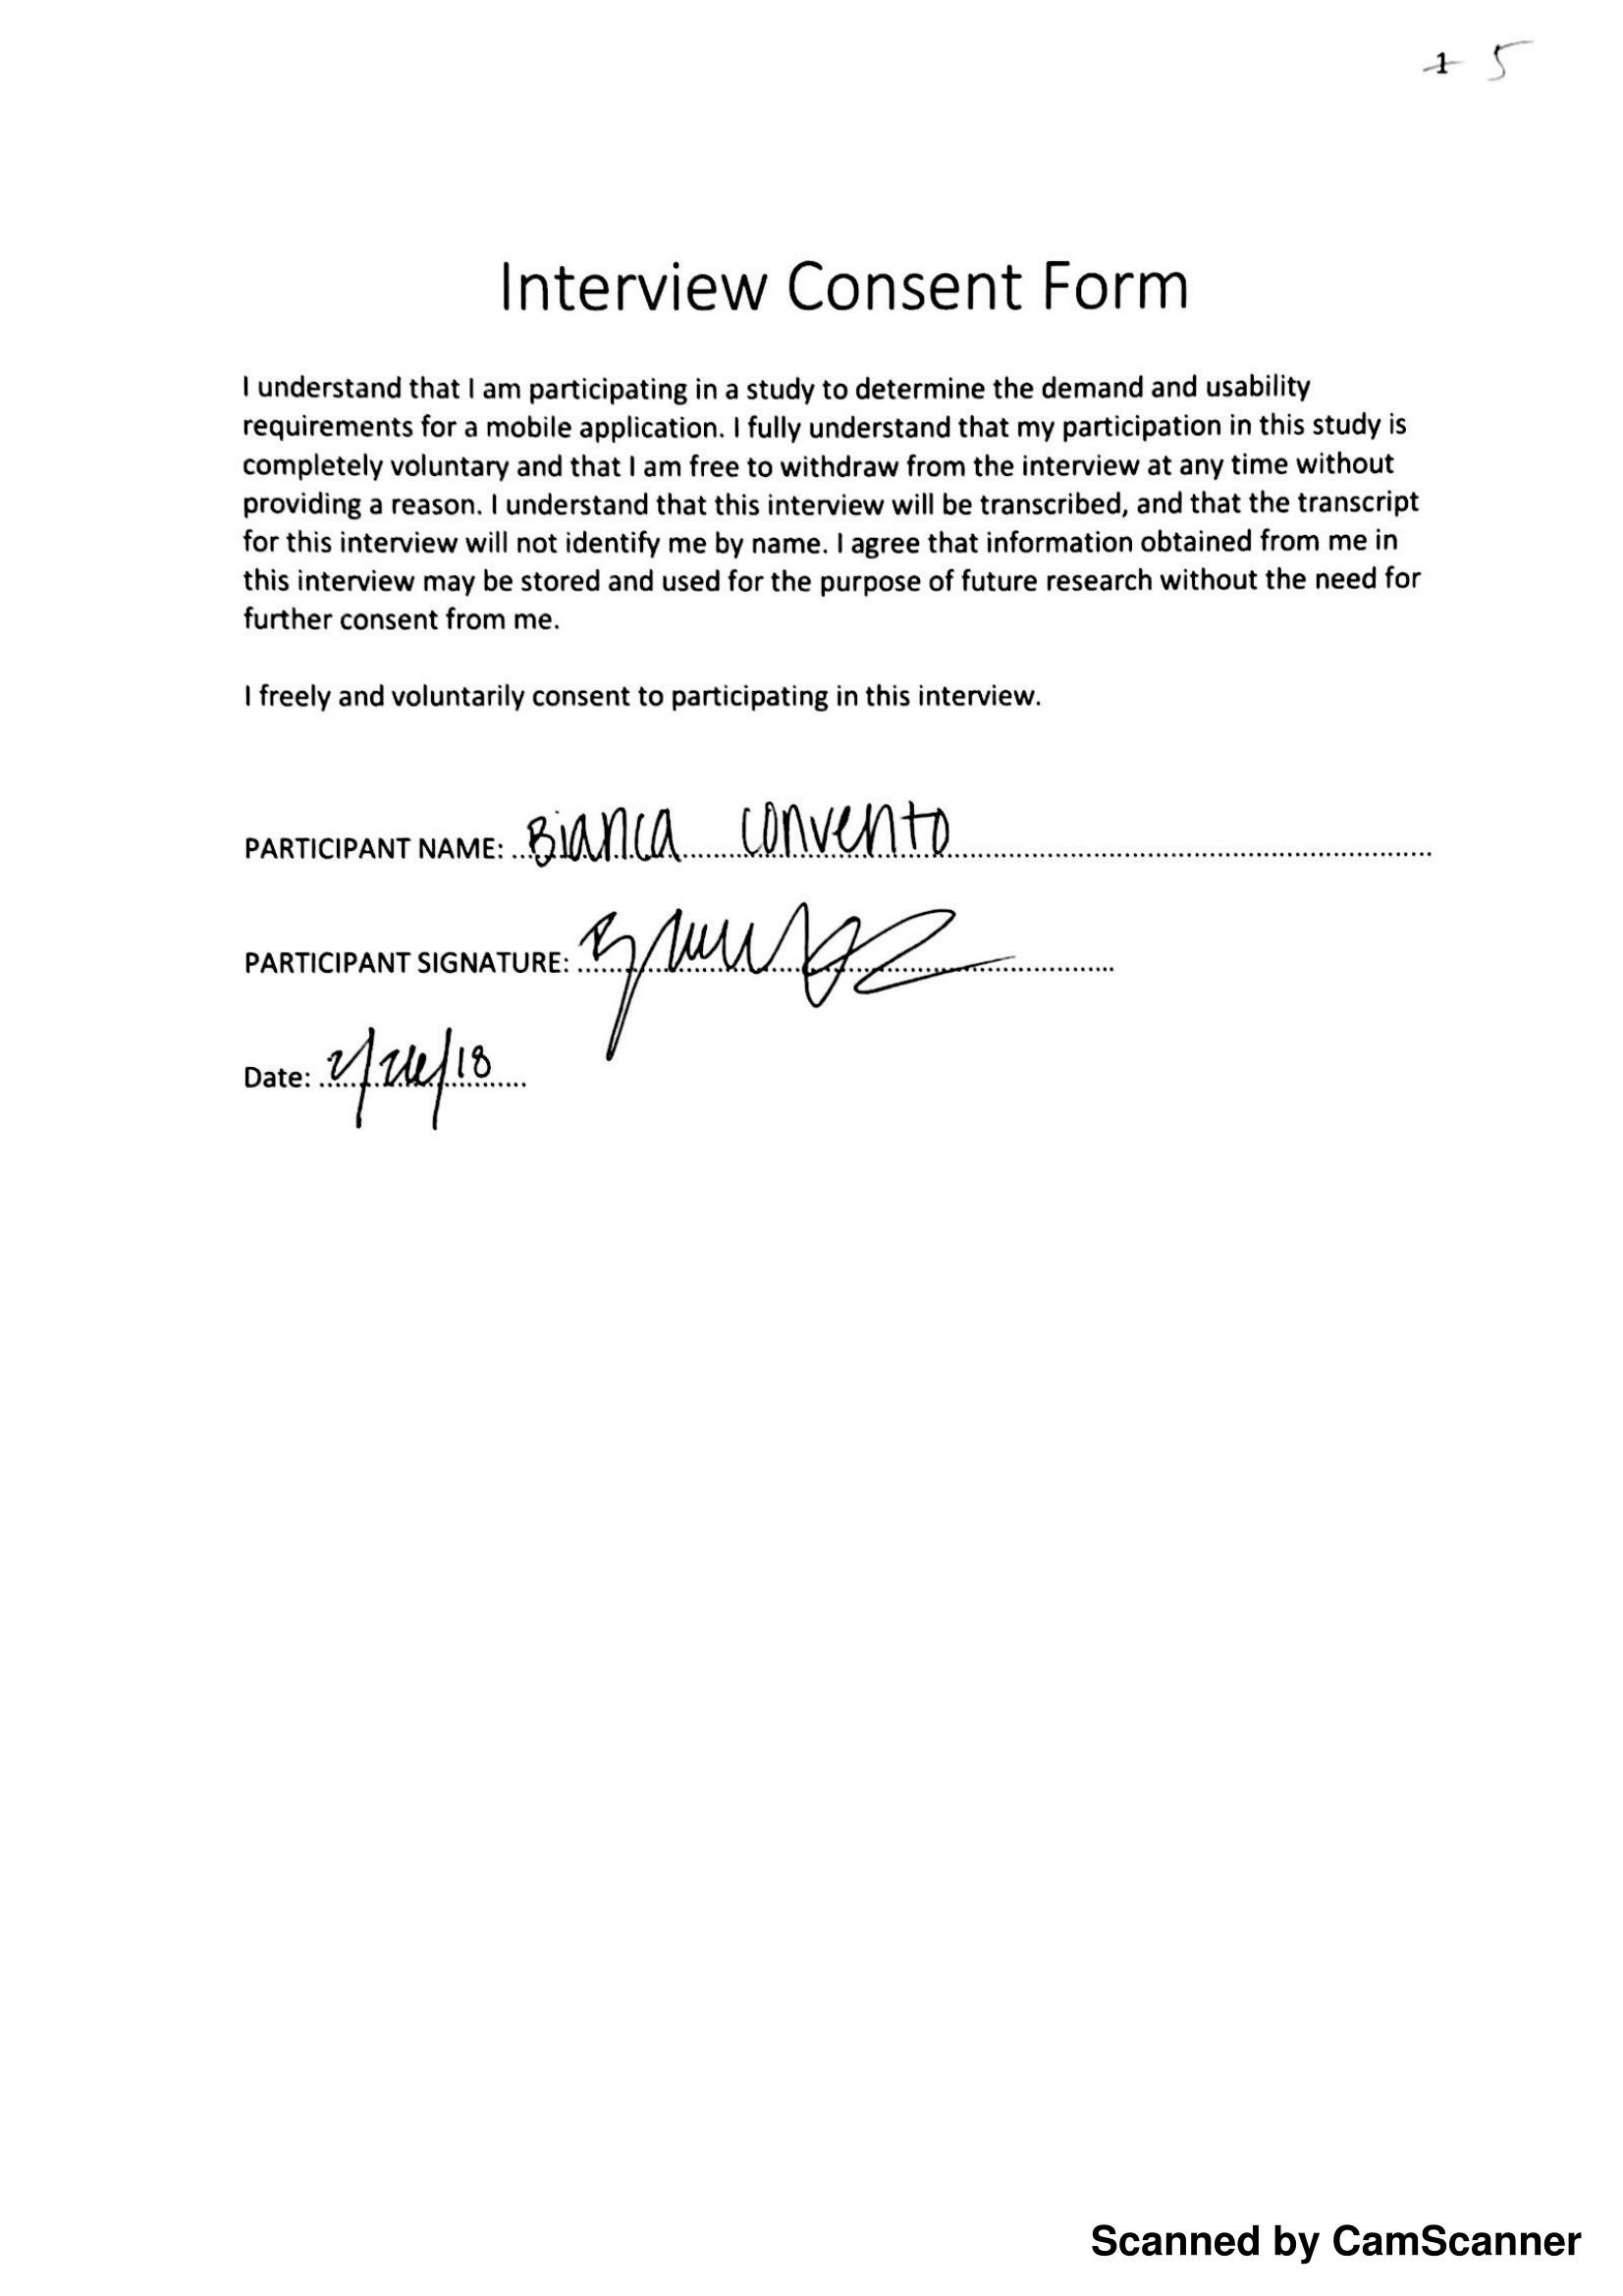 1 5
Interview Consent Form
I understand that I am participating in a study to determine the demand and usability
requirements for a mobile application. I fully understand that my participation in this study is
completely voluntary and that I am free to withdraw from the interview at any time without
providing a reason. I understand that this interview will be transcribed, and that the transcript
for this interview will not identify me by name. I agree that information obtained from me in
this interview may be stored and used for the purpose of future research without the need for
further consent from me.
I freely and voluntarily consent to participating in this interview.
PARTICIPANT NAME: Bianca Convento
PARTICIPANT SIGNATURE:
Date: 2/26/18
Scanned by CamScanner